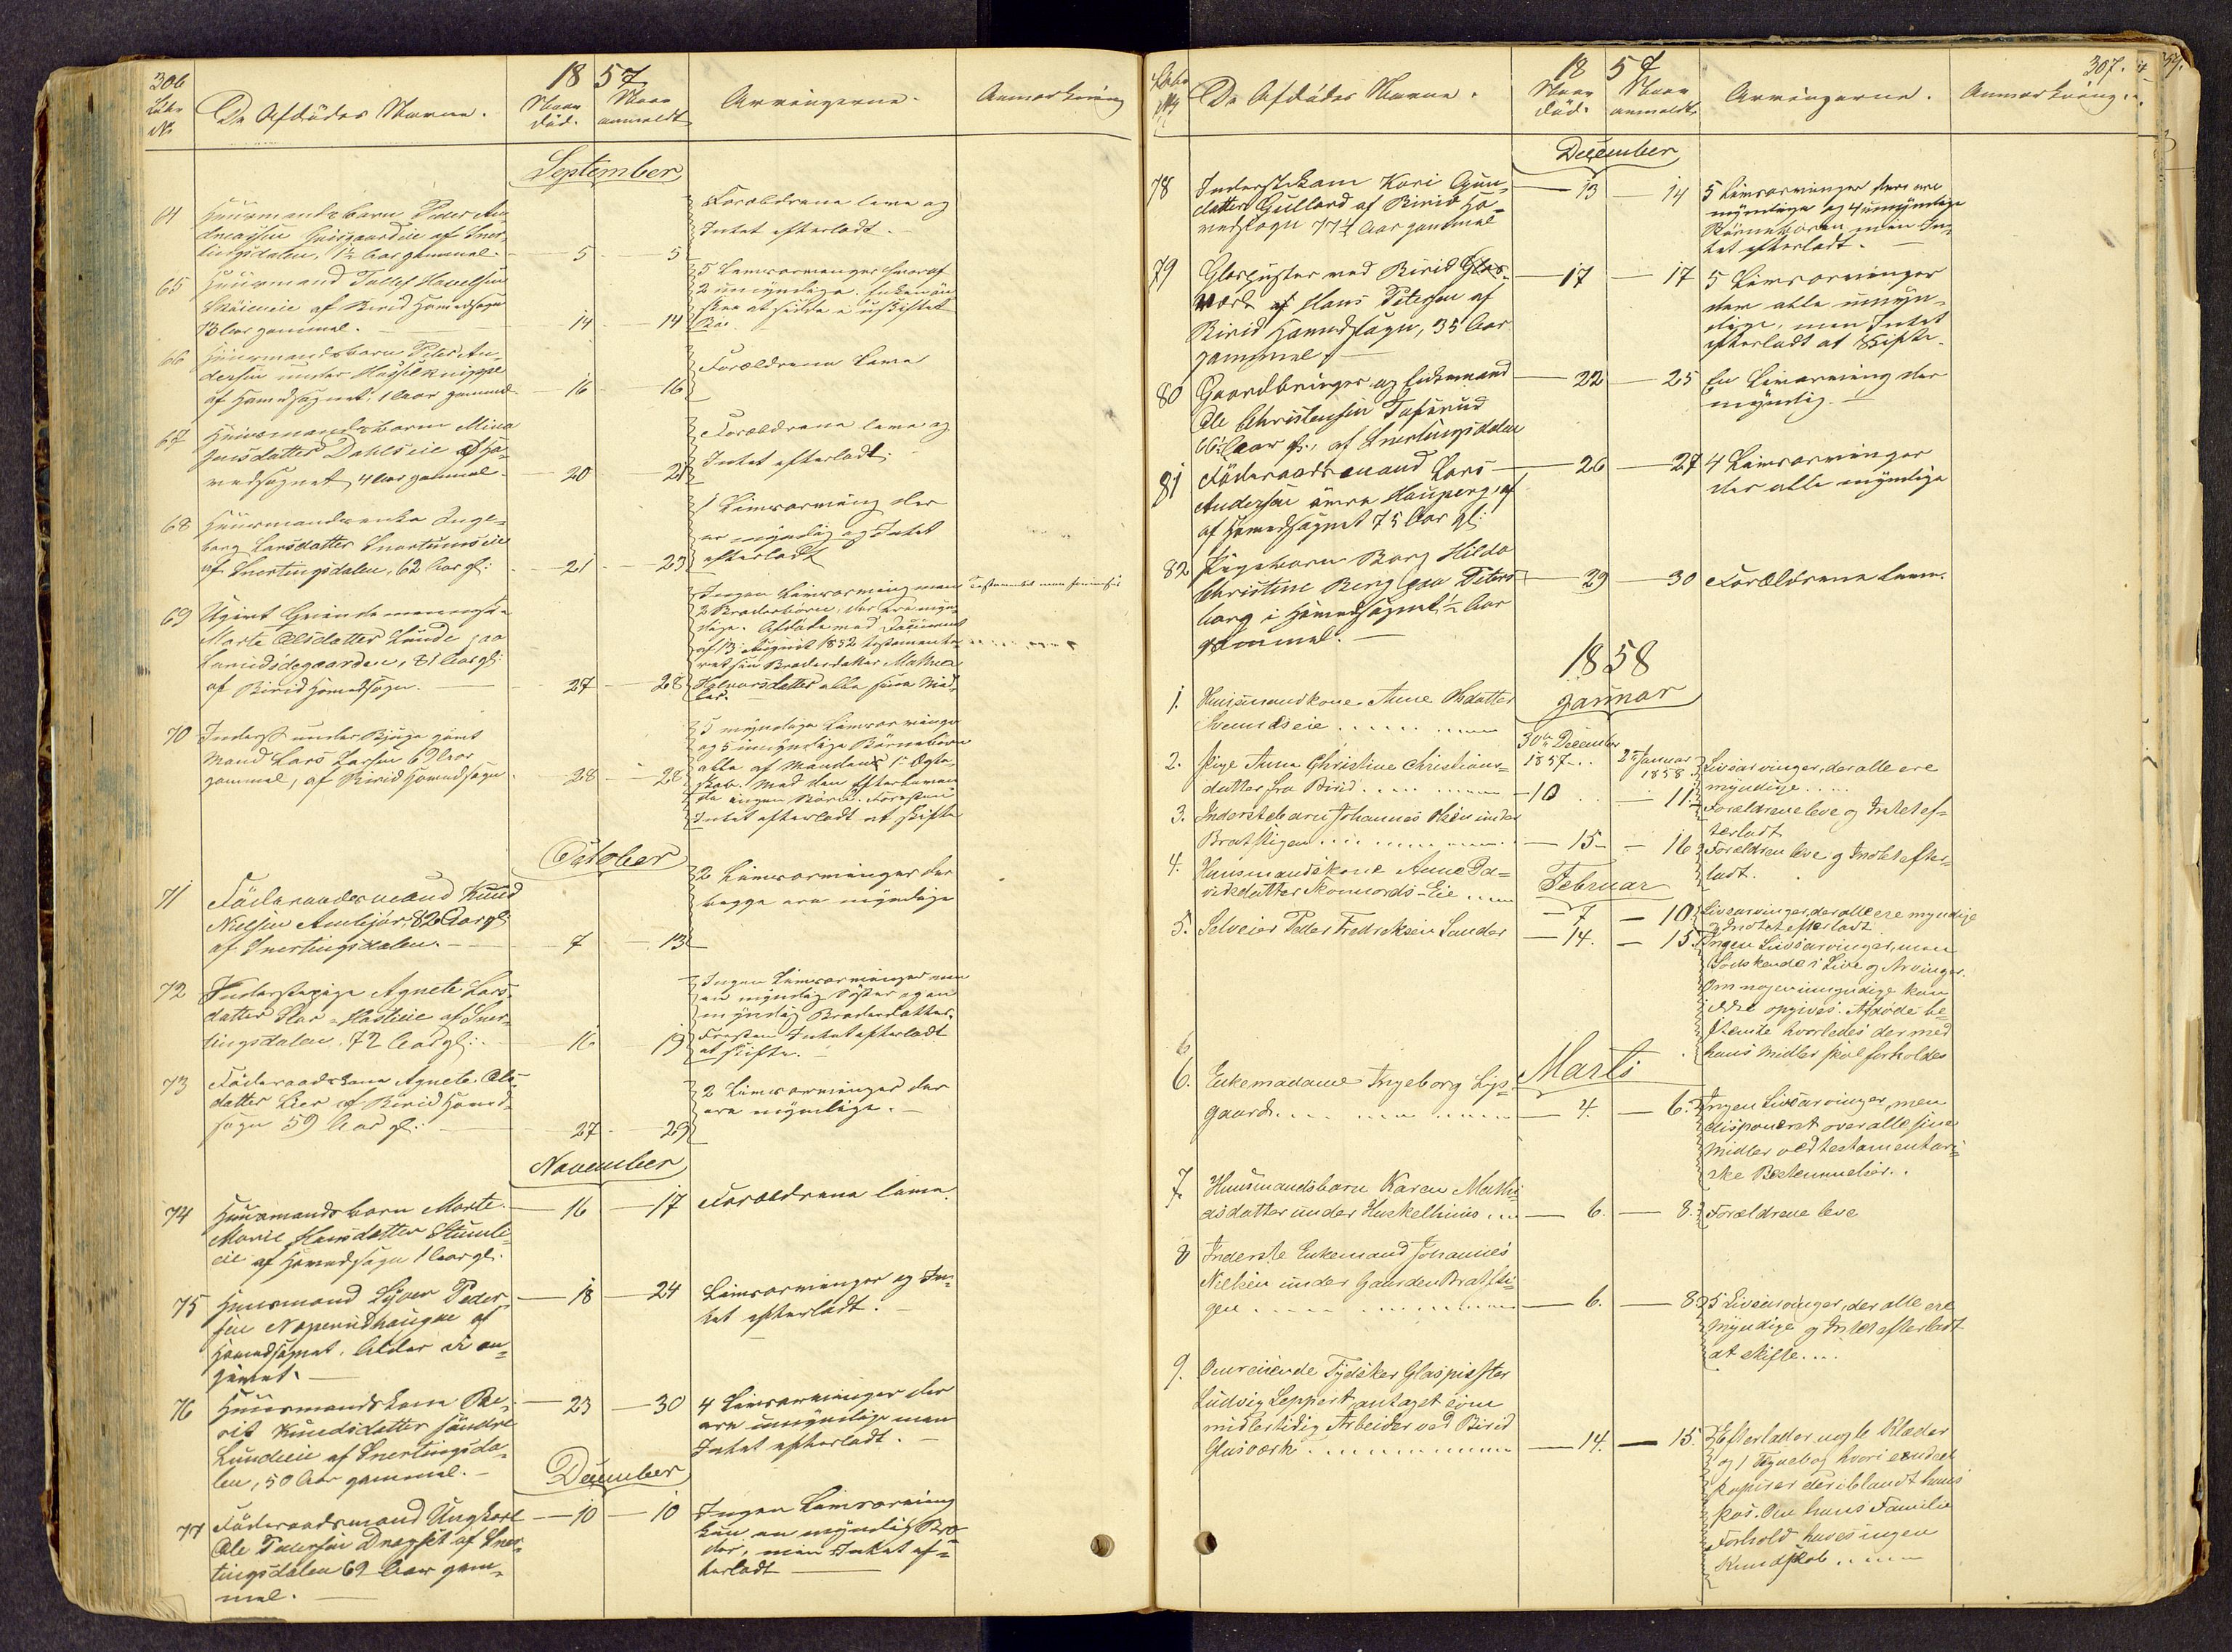 306
18 57
Løbe
No
De Afdødes Navne.
Naar
død.
Naar
anmeldt
Arvingerne.
Anmærkning
September
64 Huusmandsbarn Peder An-
dreassen af Sner-
tingsdalen, 1½ Aar gammel. 5 5
Forældrene leve og
Intet efterladt.
65 Huusmand
af Birid Hovedsogn
Aar gammel. 14 14
5 Livsarvinger hvoraf
2 umyndige. Enken øn-
sker at sidde i uskiftet
Boe
66 Huusmandsbarn Peder An-
dersen under Hasselknippe
af Hovedsognet, 1 Aar gammel 16 16
Forældrene leve
67 Huusmandsbarn Mina
Jensdatter Dahlseie af Ho-
vedsognet, 4 Aar gammel. 20 21
Forældrene leve og
Intet efterladt.
68 Huusmandsenke Inge-
borg Larsdatter Snertumseie
af Snertingsdalen, 62 Aar gl: 21 23
1 Livsarving der
er myndig og Intet
efterladt
69 Ugivt
Marte Olsdatter Lunde paa
81 Aar gl:
af Birid Hovedsogn. 27 28
Ingen Livsarving men
2 Broderbørn, der ere myn-
dige. Afdøde med Document
af 13 August 1852 testamente-
ret sin Broderdatter Mathea
Halvorsdatter alle sine Mid-
ler.
70 Inderst under Bjuge givt
Mand Lars Larsen 69 Aar
gammel, af Birid Hovedsogn 28 28
5 myndige Livsarvinger
og 5 umyndige Børnebørn
alle af Mandens 1ste Ægte-
skab. Med den efterleven-
de ingen Børn. Forresten
Intet efterladt at skifte
October
71 Føderaadsmand Knud
Nielsen 82 Aar gl:
af Snertingsdalen. 7 13
2 Livsarvinger der
begge ere myndige
72 Inderstepige Agnete Lars-
datter af Sner-
tingsdalen. 72 Aar gl: 16 19
Ingen Livsarvinger men
en myndig Søster og en
myndig Broderdatter.
Forresten Intet efterladt
at skifte.
73 Føderaadskone Agnete Ols-
datter Lier af Birid Hoved-
sogn 59 Aar gl: 27 29
2 Livsarvinger der
ere myndige.
November
74 Huusmandsbarn Marte
Marie Hansdatter
eie af Hovedsogn 1 Aar gl. 16 17
Forældrene leve.
75 Huusmand Syver Peder-
sen af
Hovedsognet. Alder ei an-
givet. 18 24
Livsarvinger og In-
tet efterladt.
76 Huusmandskone Be-
rit Knudsdatter søndre
Lundeie af Snertingsda-
len, 50 Aar gammel. 23 30
4 Livsarvinger der
ere umyndige men
Intet efterladt.
December
77 Føderaadsmand Ungkarl
Ole Pedersen af Sner-
tingsdalen 69 Aar gam-
mel. 10 10
Ingen Livsarving
kun en myndig Bro-
der, men Intet ef-
terladt
307.
18 57
Løbe
No
De Afdødes Navne.
Naar
død.
Naar
anmeldt
Arvingerne.
Anmærkning
December
78 Inderstekone Kari
datter Gullord af Birid Ho-
vedsogn 77½ Aar gammel 13 14
5 Livsarvinger der ere
myndige og 4 umyndige
Børnebørn men In-
tet efterladt.
79 Glaspuster ved Birid Glas-
værk Hans Petersen af
Birid Hovedsogn, 35 Aar
gammel. 17 17
5 Livsarvinger
der alle umyn-
dige, men Intet
efterladt at skifte.
80 Gaardbruger og Enkemand
Ole Christensen
66 Aar gl., af Snertingsdalen 22 25
En Livsarving der
myndig.
81 Føderaadsmand Lars
Andersen øvre
af Hovedsognet 75 Aar gl: 26 27
4 Livsarvinger
der alle myndige
82 Pigebarn Borg Hilda
Christine Berg paa Peters-
borg i Hovedsognet ½ Aar
gammel. 29 30
Forældrene leve.
1858
Januar
1. Huusmandkone Anne Olsdatter
Svendseie 30te December
1857 2den Januar
1858
Livsarvinger, der alle ere
myndige
2. Pige Anna Christine Christians-
datter fra Birid 10 11
Forældrene leve og Intet ef-
terladt
3. Inderstebarn Johannes Olsen under
Bratstigen 15 16
Forældren leve og Intet efter-
ladt.
Februar
4. Huusmandskone Anne Da-
vidsdatter Skonnords-Eie 7 10
Livsarvinger, der alle ere myndige
og Intet efterladt.
5. Selveier Peder Fredriksen Sander 14. 15.
Ingen Livsarvinger, men
Sødskende i Live og Arvinger.
Om nogen umyndige kan
ikke opgives. Afdøde be-
stemte hvorledes der med
hans Midler skal forholdes
Marts
6
6. Enkemadame Ingeborg Lys-
gaard 4. 6.
Ingen Livsarvinger, men
disponeret over alle sine
Midler ved testamentari-
ske Bestemmelser.
7. Huusmandsbarn Karen Mathi-
asdatter under Huskelhuus 6. 8.
Forældrene leve
8 Inderste Enkemand Johannes
Nielsen under Gaarden Bratsti-
gen 6. 8.
5 Livsarvinger, der alle ere
myndige og Intet efterladt
at skifte.
9. Omreisende Tydsker Glaspuster
Ludvig Leppert, antaget som
midlertidig Arbeider ved Birid
Glasværk 14. 15.
Efterlader nogle Klæder
og 1 Tegnebog hvori endeel
Papirer deriblandt hans
Pas. Om hans Familie
Forhold haves ingen
Kundskab